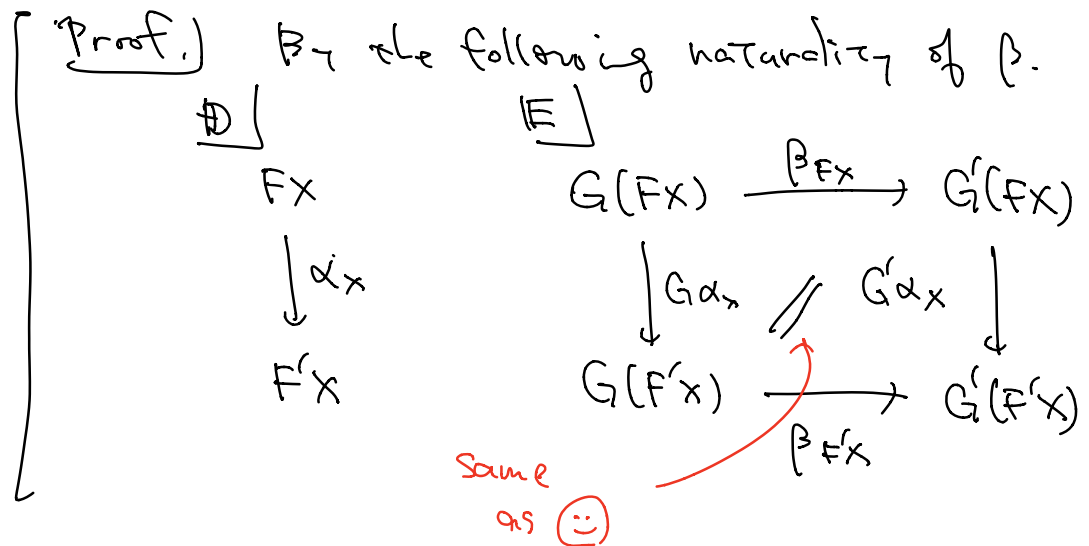 Proof.) By the following naturality of β.
𝔻 𝔼
FX G(FX) β_FX G'(FX)
α_X Gα_X G'α_X
F'X G(F'X) G'(F'X)
β_F'X
same
as